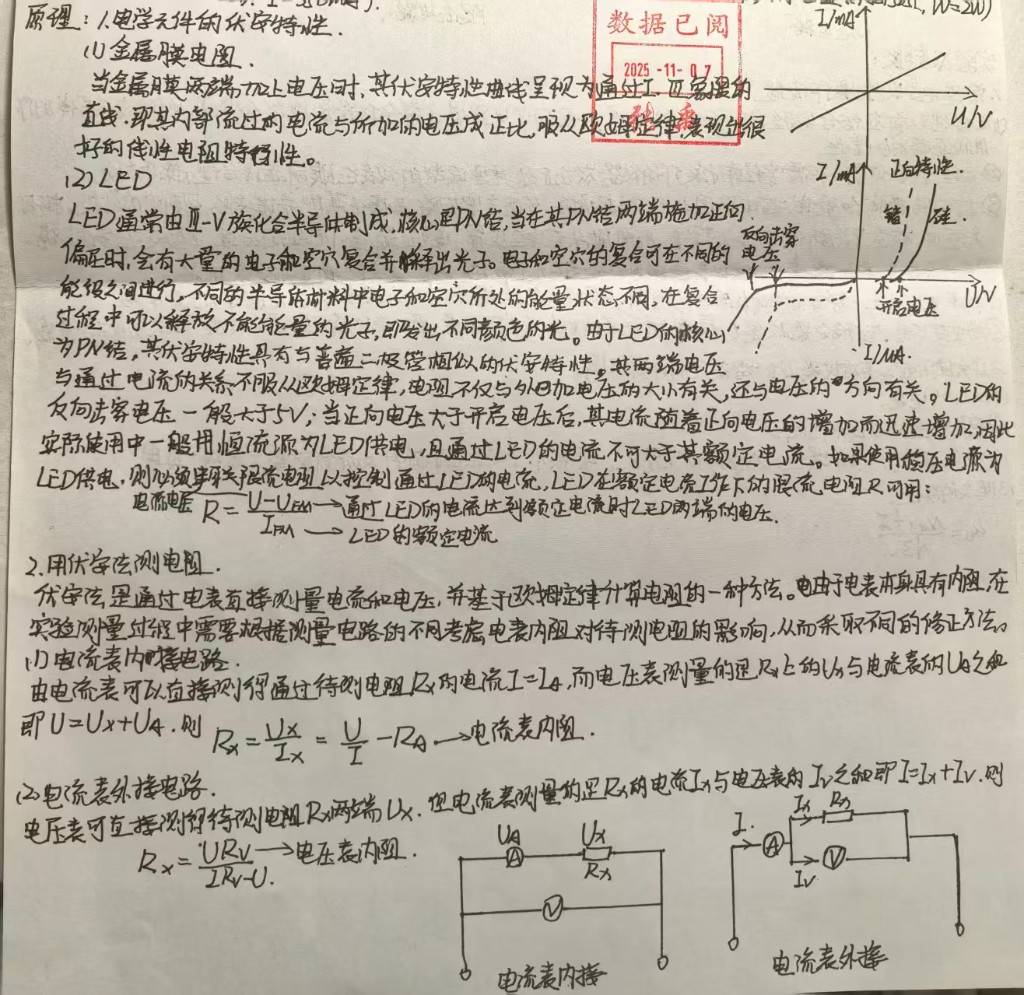 原理：1.电学元件的伏安特性.
(1)金属膜电阻.
当金属膜两端加上电压时,其伏安特性曲线呈现为通过I、III象限的
直线.即其内部流过的电流与所加的电压成正比,服从欧姆定律,表现出很
好的线性电阻特性。
数据已阅
2025-11-07
I/mA
U/V
(2)LED
LED通常由Ⅲ-V族化合半导体制成,核心是PN结,当在其PN结两端施加正向
偏压时,会有大量的电子和空穴复合并释出光子。电子和空穴的复合可在不同的
能级之间进行,不同的半导体材料中电子和空穴所处的能量状态不同,在复合
过程中可以释放不能给能量的光子,即发出不同颜色的光。由于LED的核心
为PN结,其伏安特性具有与普通二极管相似的伏安特性。其两端电压
与通过电流的关系不服从欧姆定律,电阻不仅与外加电压的大小有关,还与电压的方向有关。LED的
反向击穿电压一般大于5V;当正向电压大于开启电压后,其电流随着正向电压的增加而迅速增加,因此
实际使用中一般用恒流源为LED供电,且通过LED的电流不可大于其额定电流。如果使用稳压电源为
LED供电,则必须串联限流电阻以控制通过LED的电流,LED在额定电流工作下的限流电阻R可用:
I/mA
正向特性.
锗
硅.
反向击穿
电压
开启电压
U/V
I/μA.
电流电压
R=(U-U)/I
→通过LED的电流达到额定电流时LED两端的电压.
→LED的额定电流
2.用伏安法测电阻.
伏安法是通过电表直接测量电流和电压,并基于欧姆定律计算电阻的一种方法。由于电表本身具有内阻,在
实验测量过程中需要根据测量电路的不同考虑电表内阻对待测电阻的影响,从而采取不同的修正方法。
(1)电流表内接电路.
由电流表可以直接测得通过待测电阻Rx的电流I=IA,而电压表测量的是Rx上的Ux与电流表的UA之和
即U=Ux+UA.则 Rx=Ux/Ix=U/I-RA→电流表内阻.
(2)电流表外接电路.
电压表可直接测得待测电阻Rx两端Ux.但电流表测量的是Rx的电流Ix与电压表的Iv之和即I=Ix+Iv.则
Rx=URv/(IRv-U).→电压表内阻.
UA
Ux
A
Rx
V
电流表内接
I.
Ix
Rx
A
V
Iv
电流表外接